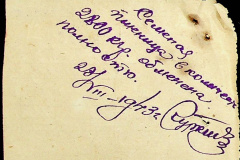 Семенная
пшеница в количестве
2800 кгр. обменена
полностью.
28/VIII-1943г.